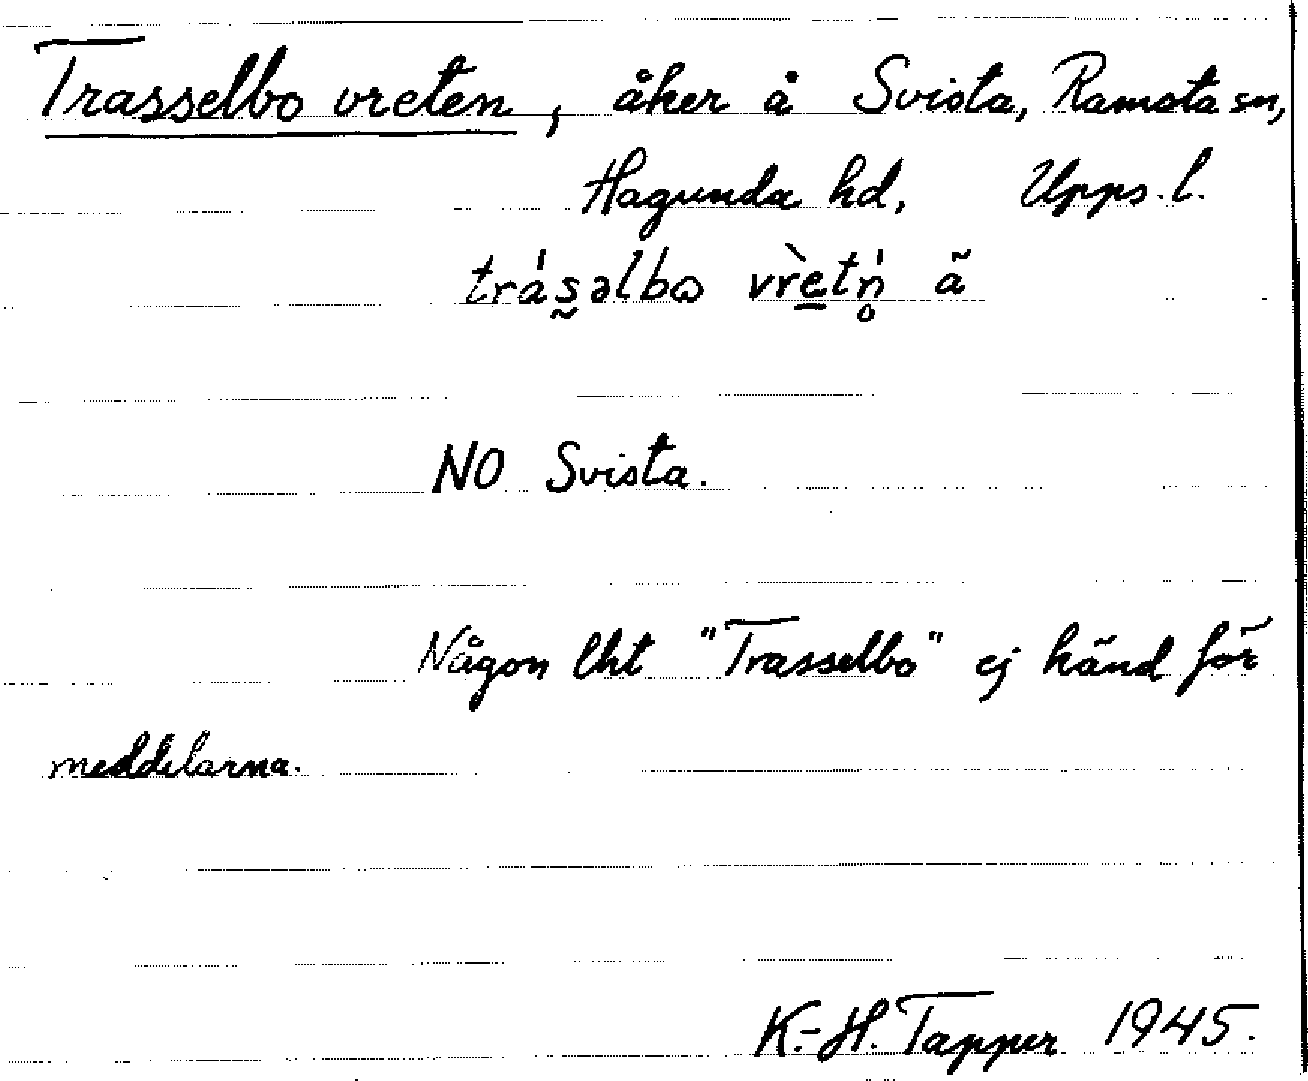 Trasselbo vreten, åker å Svista, Ramsta sn,
Hagunda hd, Upps. l.
trás̰əlbɷ vr̀e̲tń̥ ã
NO Svista.
Någon lht "Trasselbo" ej känd för
meddelarna.
K.-H. Tapper 1945.